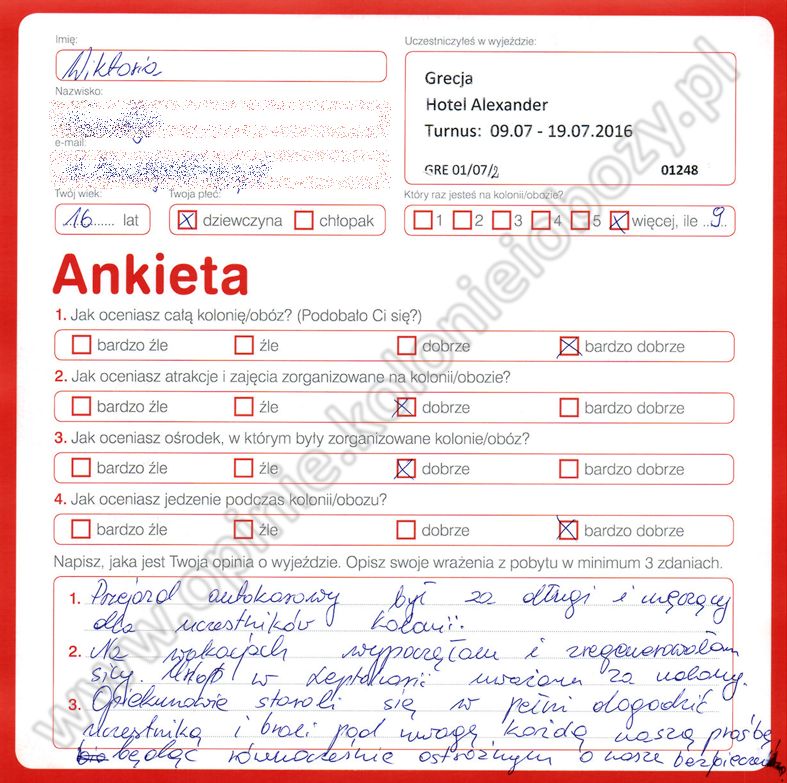 Imię:
Wiktoria
Nazwisko:
e-mail:
Twój wiek:
16 lat
Twoja płeć:
dziewczyna chłopak
Uczestniczyłeś w wyjeździe:
Grecja
Hotel Alexander
Turnus: 09.07 - 19.07.2016
GRE 01/07/2 01248
Który raz jesteś na kolonii/obozie?
1 2 3 4 5 więcej, ile 9
Ankieta
1. Jak oceniasz całą kolonię/obóz? (Podobało Ci się?)
bardzo źle źle dobrze bardzo dobrze
2. Jak oceniasz atrakcje i zajęcia zorganizowane na kolonii/obozie?
bardzo źle źle dobrze bardzo dobrze
3. Jak oceniasz ośrodek, w którym były zorganizowane kolonie/obóz?
bardzo źle źle dobrze bardzo dobrze
4. Jak oceniasz jedzenie podczas kolonii/obozu?
bardzo źle źle dobrze bardzo dobrze
Napisz, jaka jest Twoja opinia o wyjeździe. Opisz swoje wrażenia z pobytu w minimum 3 zdaniach.
1. Przejazd autokarowy był za długi i męczący
dla uczestników kolonii.
2. Na wakacjach wypoczęłam i zregenerowałam
siły. w Leptokarii uważam za udany.
3. Opiekunowie starali się w pełni dogodzić
uczestniką i brali pod uwagę każdą naszą prośbę
będąc równocześnie ostrożnym o nasze
www.opinie.kolonieiobozy.pl